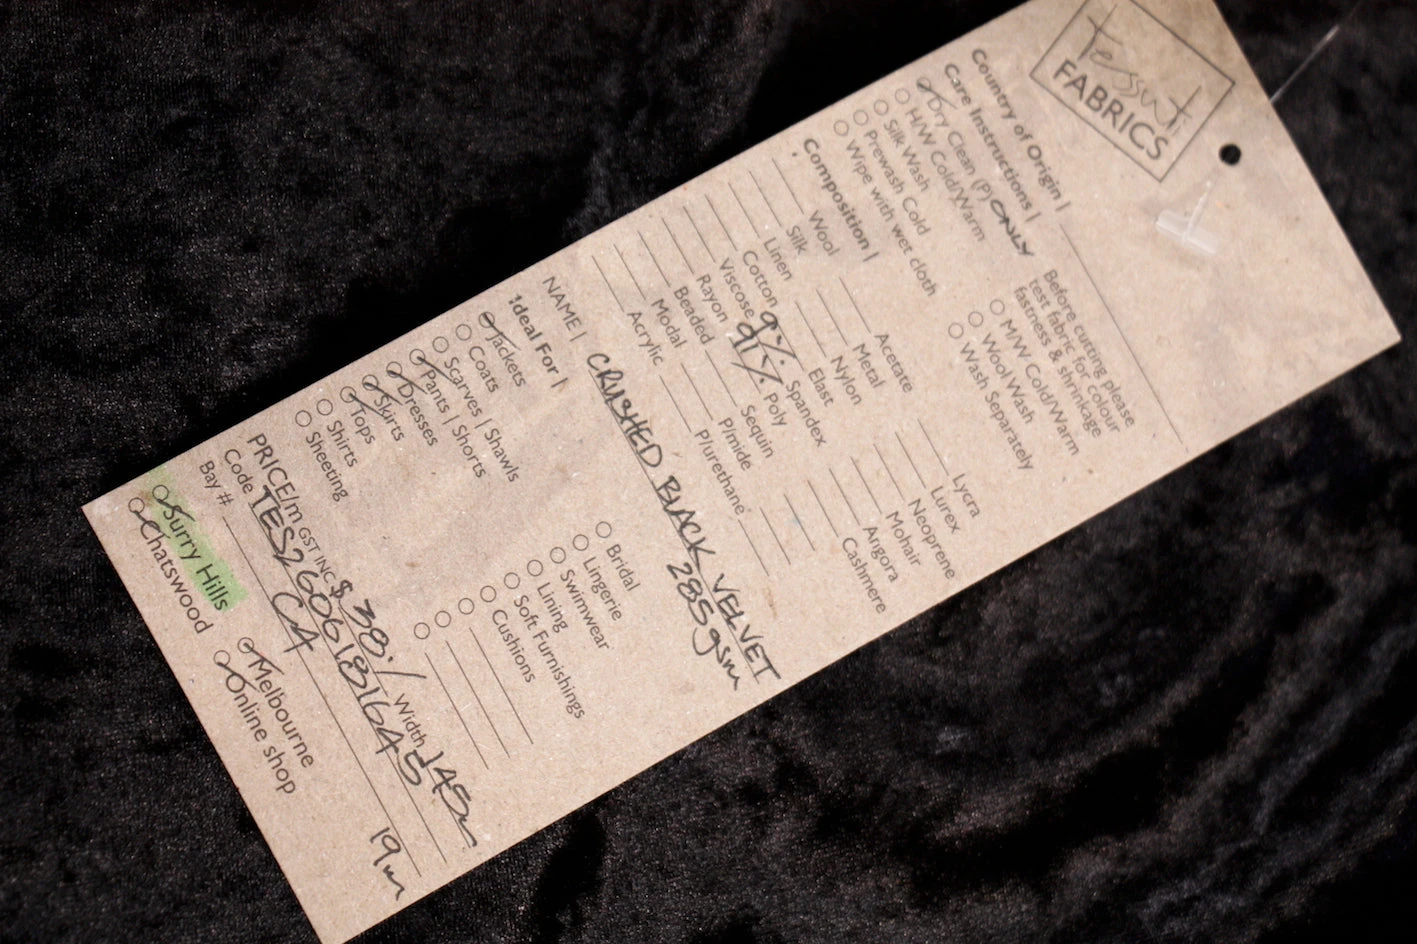 Tessuti
FABRICS
Country of Origin |
Care Instructions |
Dry Clean (P) ONLY
H/W Cold/Warm
Silk Wash
Prewash Cold
Wipe with wet cloth
Before cutting please
test fabric for colour
fastness & shrinkage
M/W Cold/Warm
Wool Wash
Wash Separately
Composition |
Wool
Silk
Linen
Cotton
Viscose
Rayon
Beaded
Modal
Acrylic
Acetate
Metal
Nylon
Elast
9% Spandex
91% Poly
Sequin
P/mide
P/urethane
Lycra
Lurex
Neoprene
Mohair
Angora
Cashmere
NAME | CRUSHED BLACK VELVET
285gsm
Ideal For |
Jackets
Coats
Scarves | Shawls
Pants | Shorts
Dresses
Skirts
Tops
Shirts
Sheeting
Bridal
Lingerie
Swimwear
Lining
Soft Furnishings
Cushions
PRICE/m GST INC $38./ Width 148
Code TES2606181645
Bay # CA 19m
Surry Hills
Chatswood
Melbourne
Online shop